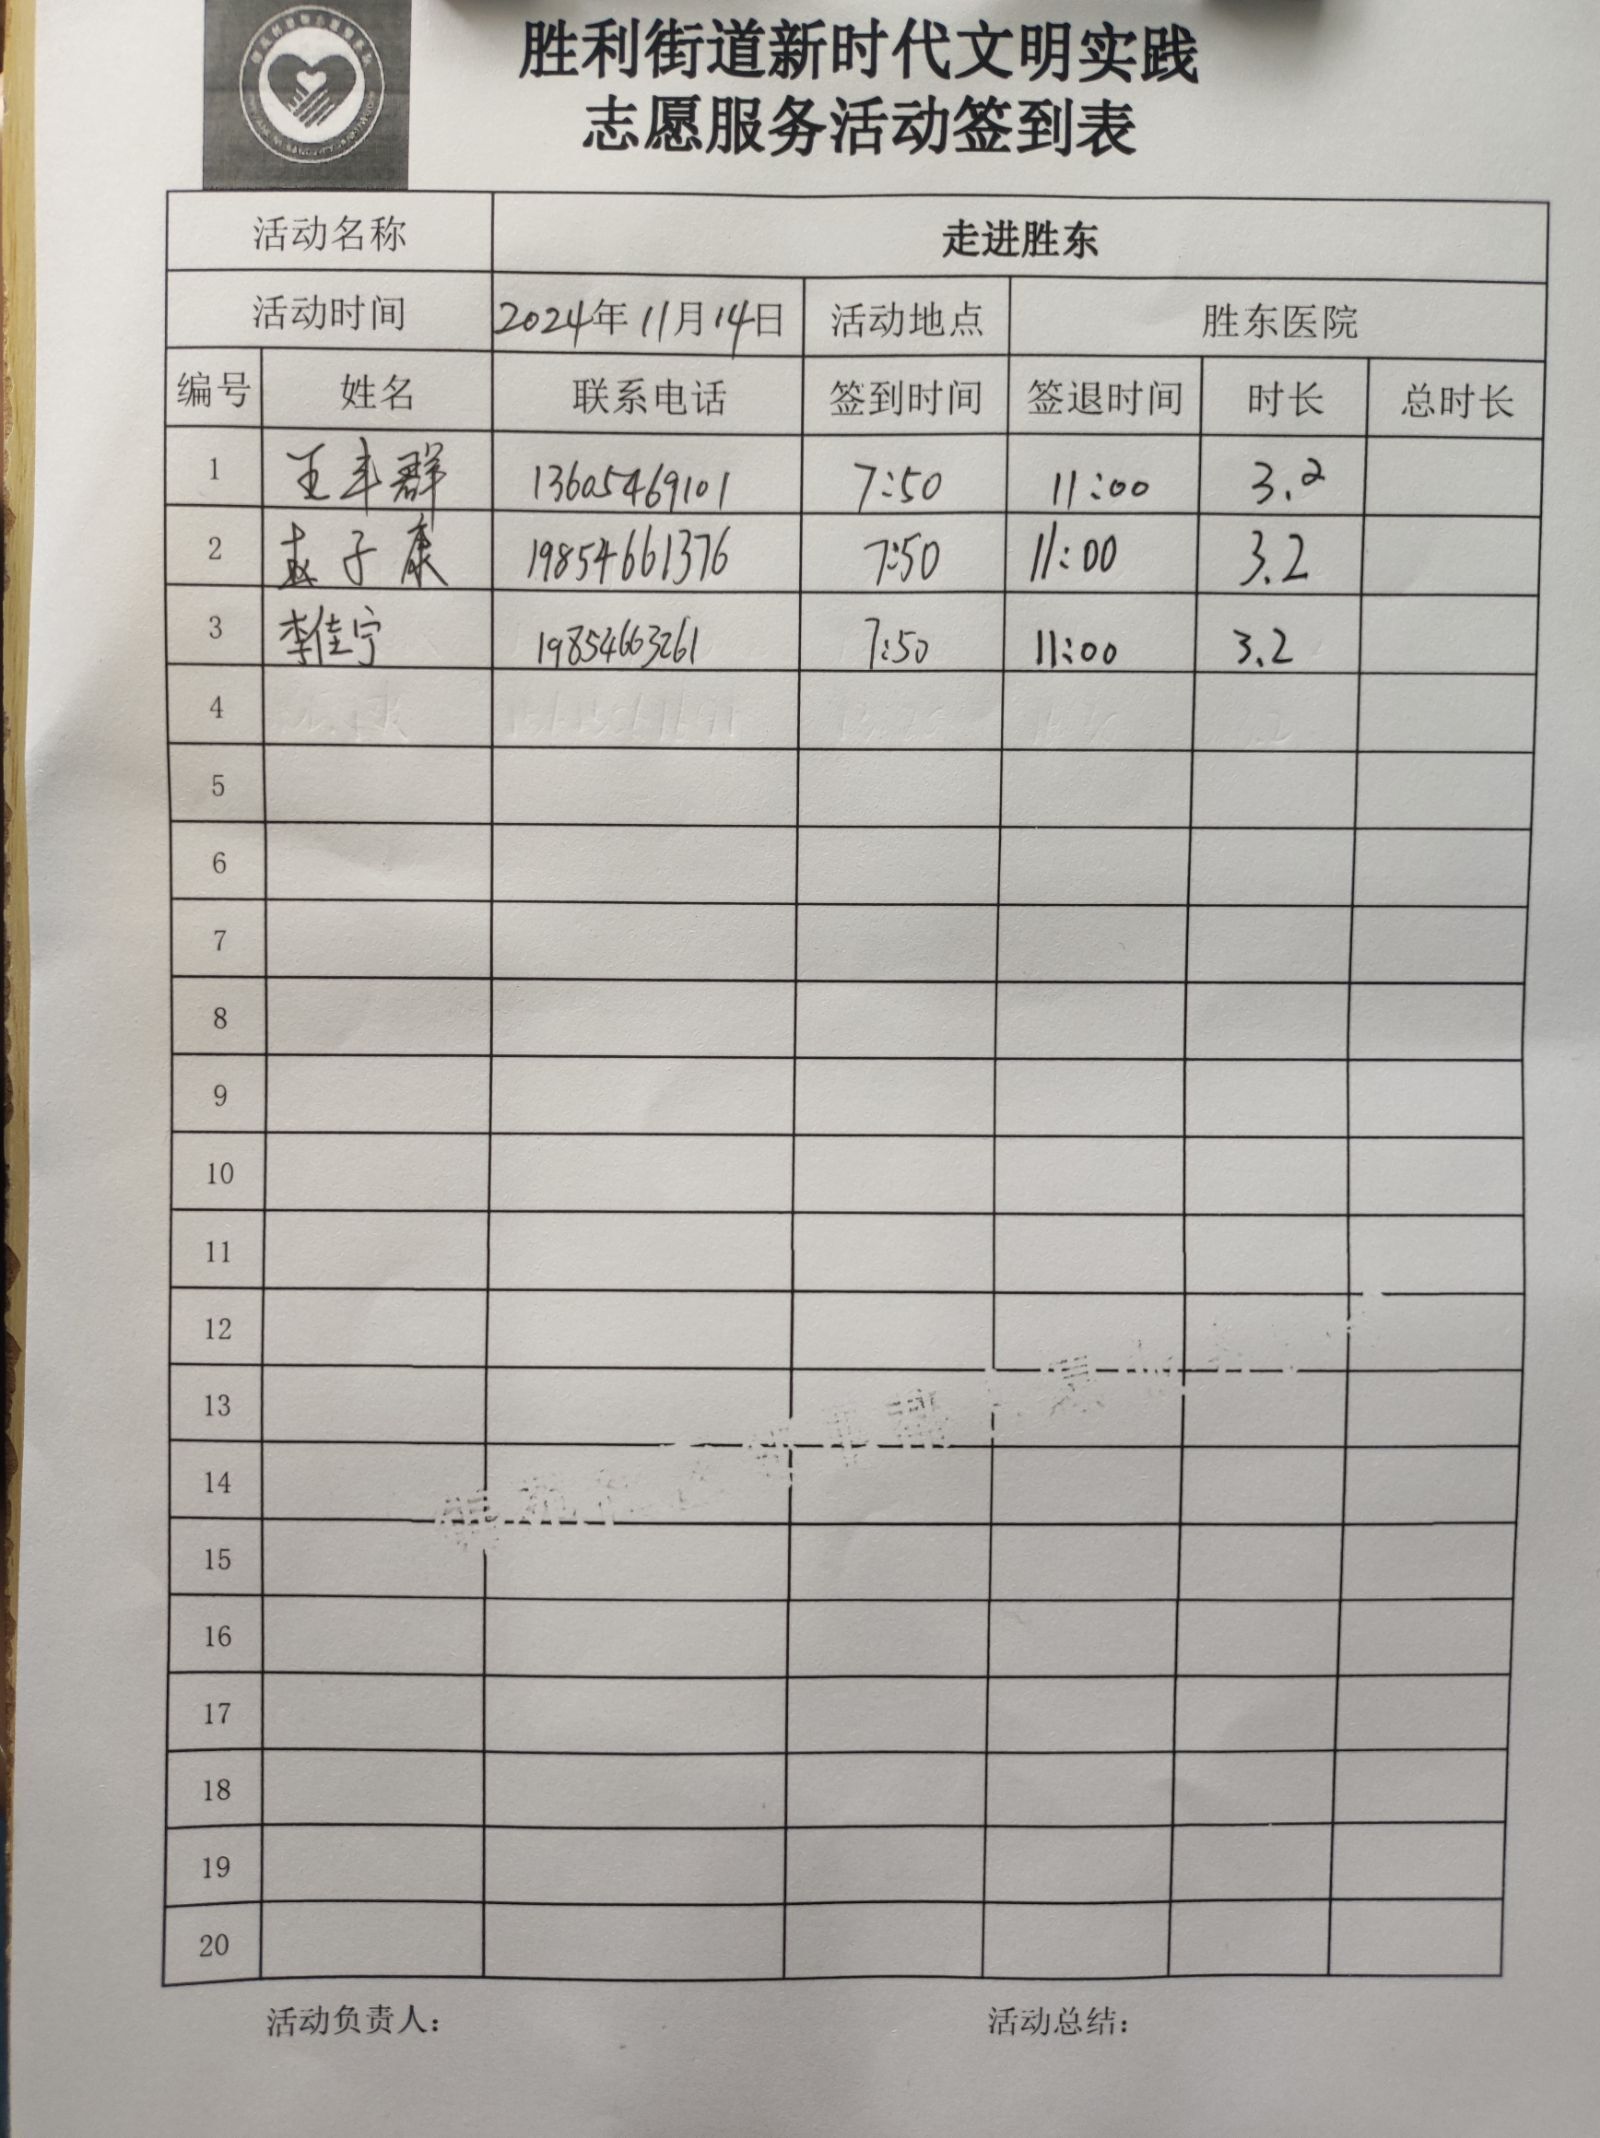 胜利街道新时代文明实践
志愿服务活动签到表
活动名称 走进胜东
活动时间 2024年11月14日 活动地点 胜东医院
编号 姓名 联系电话 签到时间 签退时间 时长 总时长
1 王丰群 13605469101 7:50 11:00 3.2
2 赵子康 19854661376 7:50 11:00 3.2
3 李佳宁 19854663261 7:50 11:00 3.2
4
5
6
7
8
9
10
11
12
13
14
15
16
17
18
19
20
活动负责人: 活动总结: